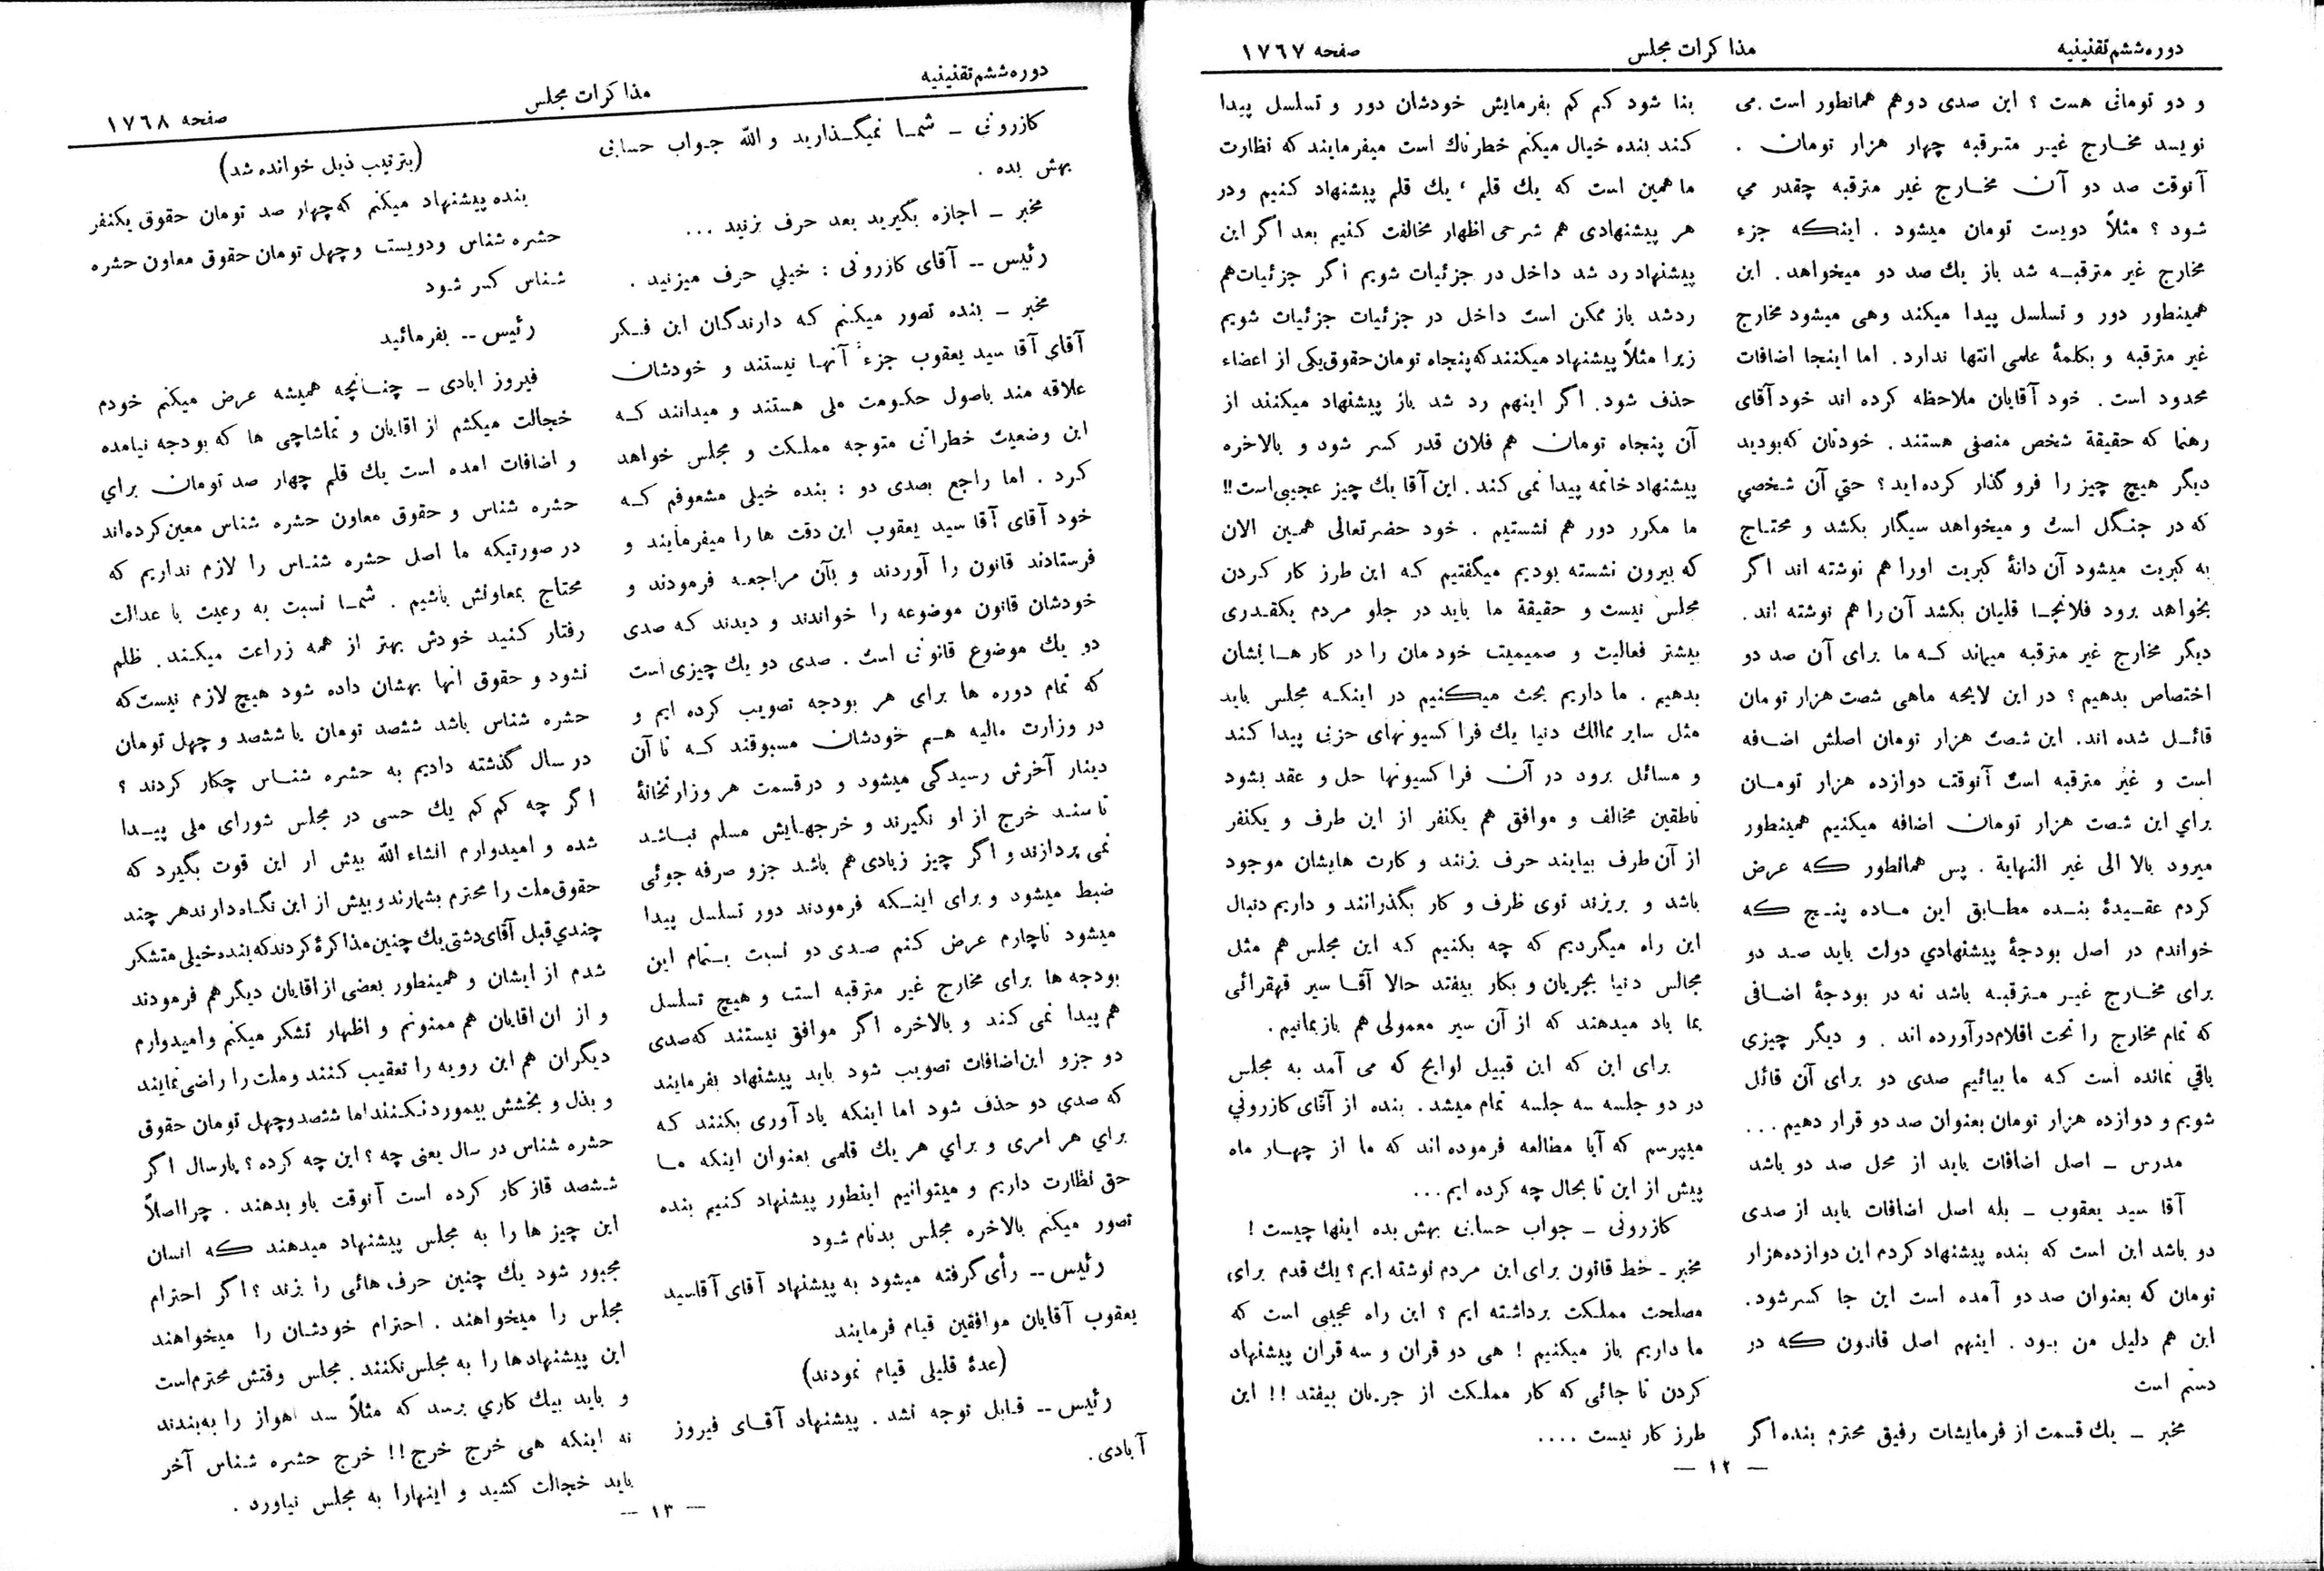 دوره ششم تقنینیه
مذاکرات مجلس
صفحه ۱۷٦۷
و دو تومانی هست ؟ این صدی دو هم همانطور است . می
نویسد مخارج غیر مترقبه چهار هزار تومان .
آنوقت صد دو آن مخارج غیر مترقبه چقدر می
شود ؟ مثلاً دویست تومان میشود . اینکه جزء
مخارج غیر مترقبه شد باز یك صد دو میخواهد . این
همینطور دور و تسلسل پیدا میکند وهی میشود مخارج
غیر مترقبه و بکلمهٔ علمی انتها ندارد . اما اینجا اضافات
محدود است . خود آقایان ملاحظه کرده اند خود آقای
رهنما که حقیقة شخص منصفی هستند . خودتان که بودید
دیگر هیچ چیز را فرو گذار کرده اید ؟ حتي آن شخصي
که در جنگل است و میخواهد سیگار بکشد و محتاج
به کبریت میشود آن دانهٔ کبریت اورا هم نوشته اند اگر
بخواهد برود فلانجا قلیان بکشد آن را هم نوشته اند .
دیگر مخارج غیر مترقبه میماند که ما برای آن صد دو
اختصاص بدهیم ؟ در این لایحه ماهی شصت هزار تومان
قائل شده اند . این شصت هزار تومان اصلش اضافه
است و غیر مترقبه است آنوقت دوازده هزار تومان
براي این شصت هزار تومان اضافه میکنیم همینطور
میرود بالا الی غیر النهایة . پس همانطور که عرض
کردم عقیدهٔ بنده مطابق این ماده پنج که
خواندم در اصل بودجهٔ پیشنهادي دولت باید صد دو
برای مخارج غیر مترقبه باشد نه در بودجهٔ اضافی
که تمام مخارج را تحت اقلام درآورده اند . و دیگر چیزي
باقي نمانده است که ما بیائیم صدی دو برای آن قائل
شویم و دوازده هزار تومان بعنوان صد دو قرار دهیم ...
مدرس ــ اصل اضافات باید از محل صد دو باشد
آقا سید یعقوب ــ بله اصل اضافات باید از صدی
دو باشد این است که بنده پیشنهاد کردم این دوازده هزار
تومان که بعنوان صد دو آمده است این جا کسر شود .
این هم دلیل من بود . اینهم اصل قانون که در
دستم است
مخبر ــ یك قسمت از فرمایشات رفیق محترم بنده اگر
بنا شود کم کم بفرمایش خودشان دور و تسلسل پیدا
کند بنده خیال میکنم خطرناك است میفرمایند که نظارت
ما همین است که یك قلم ، یك قلم پیشنهاد کنیم ودر
هر پیشنهادی هم شرحی اظهار مخالفت کنیم بعد اگر این
پیشنهاد رد شد داخل در جزئیات شویم اگر جزئیات هم
ردشد باز ممکن است داخل در جزئیات جزئیات شویم
زیرا مثلاً پیشنهاد میکنند که پنجاه تومان حقوق یکی از اعضاء
حذف شود . اگر اینهم رد شد باز پیشنهاد میکنند از
آن پنجاه تومان هم فلان قدر کسر شود و بالاخره
پیشنهاد خاتمه پیدا نمی کند . این آقا یك چیز عجیبی است !!
ما مکرر دور هم نشستیم . خود حضرتعالی همین الان
که بیرون نشسته بودیم میگفتیم که این طرز کار کردن
مجلس نیست و حقیقة ما باید در جلو مردم یکقدری
بیشتر فعالیت و صمیمیت خودمان را در کار هایشان
بدهیم . ما داریم بحث میکنیم در اینکه مجلس باید
مثل سایر ممالك دنیا یك فراکسیونهای حزبی پیدا کند
و مسائل برود در آن فراکسیونها حل و عقد بشود
ناطقین مخالف و موافق هم یکنفر از این طرف و یکنفر
از آن طرف بیایند حرف بزنند و کارت هایشان موجود
باشد و بریزند توی ظرف و کار بگذرانند و داریم دنبال
این راه میگردیم که چه بکنیم که این مجلس هم مثل
مجالس دنیا بجریان و بکار بیفتد حالا آقا سیر قهقرائی
بما یاد میدهند که از آن سیر معمولی هم باز بمانیم .
برای این که این قبیل لوایح که می آمد به مجلس
در دو جلسه سه جلسه تمام میشد . بنده از آقای کازروني
میپرسم که آیا مطالعه فرموده اند که ما از چهار ماه
پیش از این تا بحال چه کرده ایم ...
کازرونی ــ جواب حسابی بهش بده اینها چیست !
مخبر ــ خط قانون برای این مردم نوشته ایم ؟ یك قدم برای
مصلحت مملکت برداشته ایم ؟ این راه عجیبی است که
ما داریم باز میکنیم ! هی دو قران و سه قران پیشنهاد
کردن تا جائی که کار مملکت از جریان بیفتد !! این
طرز کار نیست ....
ــ ۱۲ ــ
دوره ششم تقنینیه
مذاکرات مجلس
صفحه ۱۷٦۸
کازرونی ــ شما نمیگذارید والله جواب حسابی
بهش بده .
مخبر ــ اجازه بگیرید بعد حرف بزنید ...
رئیس ــ آقای کازرونی : خیلي حرف میزنید .
مخبر ــ بنده تصور میکنم که دارندگان این فکر
آقاي آقا سید یعقوب جزء آنها نیستند و خودشان
علاقه مند باصول حکومت ملی هستند و میدانند که
این وضعیت خطراتی متوجه مملکت و مجلس خواهد
کرد . اما راجع بصدی دو : بنده خیلی مشعوفم که
خود آقای آقا سید یعقوب این دقت ها را میفرمایند و
فرستادند قانون را آوردند و بآن مراجعه فرمودند و
خودشان قانون موضوعه را خواندند و دیدند که صدی
دو یك موضوع قانونی است . صدی دو یك چیزی است
که تمام دوره ها برای هر بودجه تصویب کرده ایم و
در وزارت مالیه هم خودشان مسبوقند که تا آن
دینار آخرش رسیدگی میشود و در قسمت هر وزارتخانهٔ
تا سند خرج از او نگیرند و خرجهایش مسلم نباشد
نمی پردازند و اگر چیز زیادی هم باشد جزو صرفه جوئی
ضبط میشود و برای اینکه فرمودند دور تسلسل پیدا
میشود ناچارم عرض کنم صدی دو نسبت بتمام این
بودجه ها برای مخارج غیر مترقبه است و هیچ تسلسل
هم پیدا نمی کند و بالاخره اگر موافق نیستند که صدی
دو جزو این اضافات تصویب شود باید پیشنهاد بفرمایند
که صدی دو حذف شود اما اینکه یاد آوری بکنند که
براي هر امری و براي هر یك قلمی بعنوان اینکه ما
حق نظارت داریم و میتوانیم اینطور پیشنهاد کنیم بنده
تصور میکنم بالاخره مجلس بدنام شود
رئیس ــ رأی گرفته میشود به پیشنهاد آقای آقاسید
یعقوب آقایان موافقین قیام فرمایند
(عدهٔ قلیلی قیام نمودند)
رئیس ــ قابل توجه نشد . پیشنهاد آقای فیروز
آبادی .
(بترتیب ذیل خوانده شد)
بنده پیشنهاد میکنم که چهار صد تومان حقوق یکنفر
حشره شناس ودویست و چهل تومان حقوق معاون حشره
شناس کسر شود
رئیس ــ بفرمائید
فیروز ابادی ــ چنانچه همیشه عرض میکنم خودم
خجالت میکشم از اقایان و تماشاچی ها که بودجه نیامده
و اضافات امده است یك قلم چهار صد تومان براي
حشره شناس و حقوق معاون حشره شناس معین کرده اند
در صورتیکه ما اصل حشره شناس را لازم نداریم که
محتاج بمعاونش باشیم . شما نسبت به رعیت با عدالت
رفتار کنید خودش بهتر از همه زراعت میکند . ظلم
نشود و حقوق انها بهشان داده شود هیچ لازم نیست که
حشره شناس باشد ششصد تومان یا ششصد و چهل تومان
در سال گذشته دادیم به حشره شناس چکار کردند ؟
اگر چه کم کم یك حسی در مجلس شورای ملی پیدا
شده و امیدوارم انشاء الله بیش از این قوت بگیرد که
حقوق ملت را محترم بشمارند و بیش از این نگاه دارند هر چند
چندي قبل آقای دشتی یك چنین مذاکرهٔ کردند که بنده خیلی متشکر
شدم از ایشان و همینطور بعضی از اقایان دیگر هم فرمودند
و از ان اقایان هم ممنونم و اظهار تشکر میکنم و امیدوارم
دیگران هم این رویه را تعقیب کنند و ملت را راضی نمایند
و بذل و بخشش بیمورد نکنند اما ششصد و چهل تومان حقوق
حشره شناس در سال یعنی چه ؟ این چه کرده ؟ پارسال اگر
ششصد قاز کار کرده است آنوقت باو بدهند . چرا اصلاً
این چیز ها را به مجلس پیشنهاد میدهند که انسان
مجبور شود یك چنین حرف هائی را بزند ؟ اگر احترام
مجلس را میخواهند . احترام خودشان را میخواهند
این پیشنهادها را به مجلس نکنند . مجلس وقتش محترم است
و باید بیك کاري برسد که مثلاً سد اهواز را به بندند
نه اینکه هی خرج خرج !! خرج حشره شناس آخر
باید خجالت کشید و اینهارا به مجلس نیاورد .
ــ ۱۳ ــ